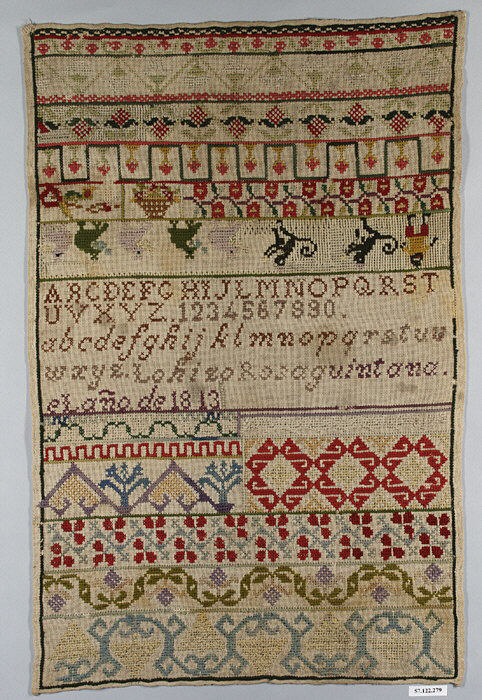 ABCDEFGHIJLMNOPQRST
UVXYZ.1234567890.
abcdefghijklmnopqrstuv
wxyz.Lohizo Rosaquintana.
el año de 1813
57.122.279